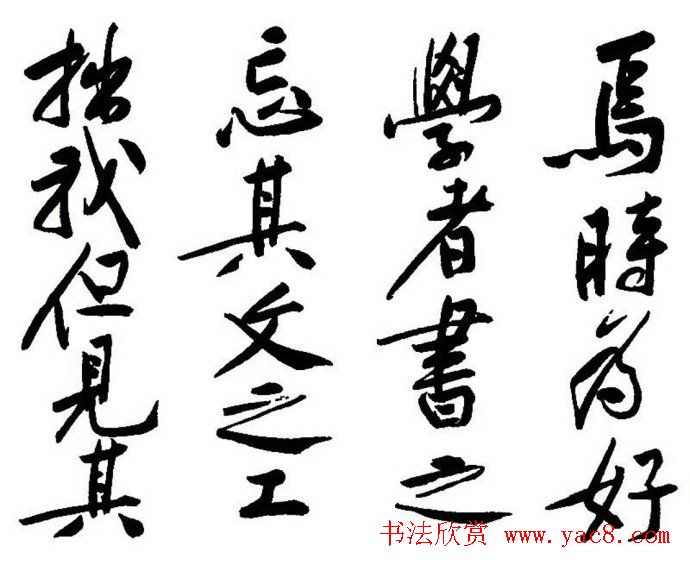 焉時為好
學者書之
忘其文之工
拙我但見其
书法欣赏 www.yac8.com